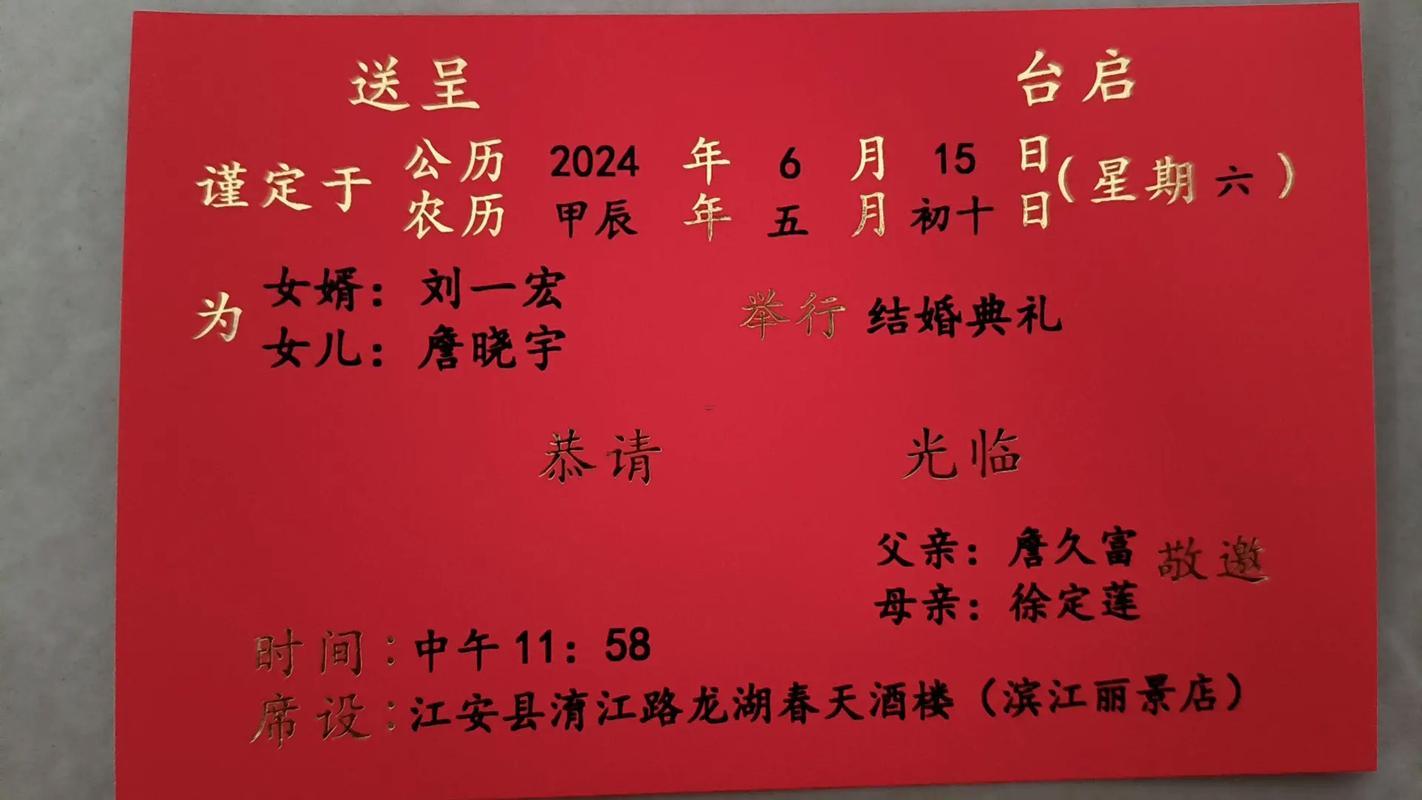 送呈 台启
谨定于 公历 2024 年 6 月 15 日 (星期 六 )
农历 甲辰 年 五 月 初十 日
为 女婿：刘一宏 举行 结婚典礼
女儿：詹晓宇
恭请 光临
父亲：詹久富 敬邀
母亲：徐定莲
时间：中午 11：58
席设：江安县淯江路龙湖春天酒楼（滨江丽景店）